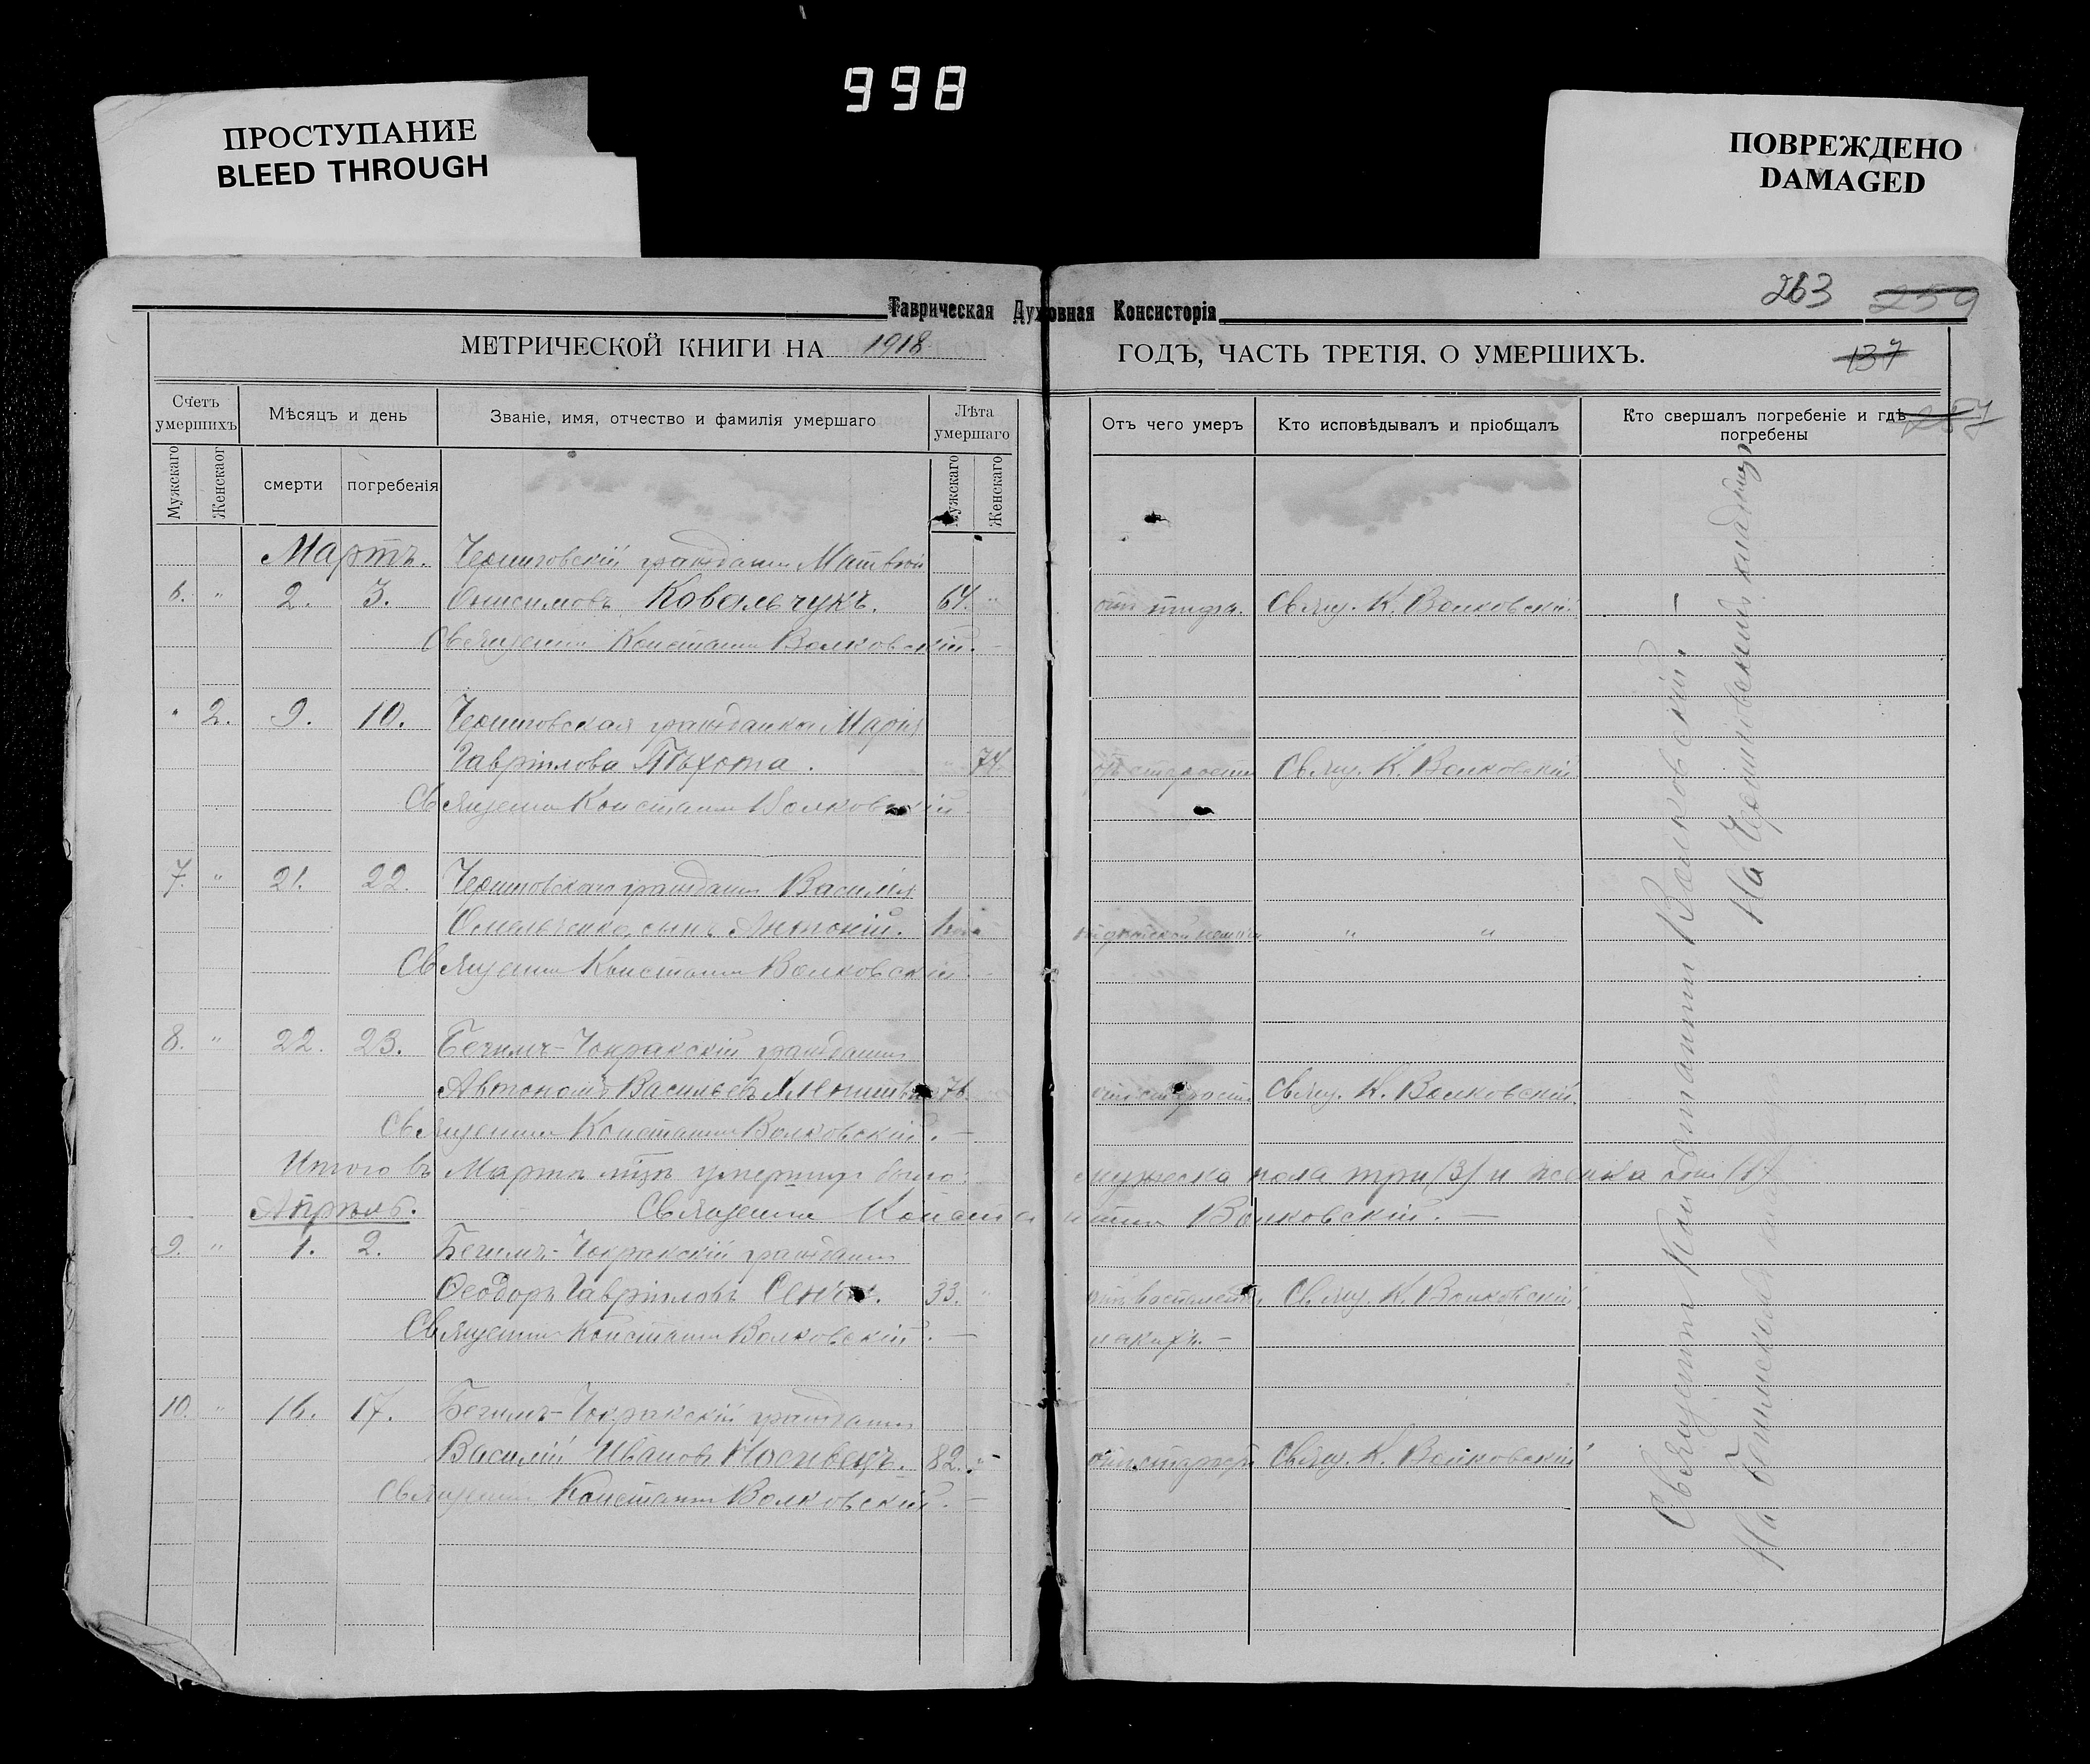 998
ПРОСТУПАНИЕ
BLEED THROUGH
ПОВРЕЖДЕНО
DAMAGED
263 259
Таврическая Духовная Консисторія
МЕТРИЧЕСКОЙ КНИГИ НА 1918 ГОДЪ, ЧАСТЬ ТРЕТІЯ. О УМЕРШИХЪ.
137
257
Счетъ умершихъ
Мѣсяцъ и день
Званіе, имя, отчество и фамилія умершаго
Лѣта умершаго
Отъ чего умеръ
Кто исповѣдывалъ и пріобщалъ
Кто свершалъ погребеніе и гдѣ погребены
Мужскаго
Женскаог
смерти
погребенія
Мужскаго
Женскаго
Мартъ. Черниговскій гражданин Матвѣй
6. " 2. 3. Онисимовъ Ковальчукъ. 64. " отъ тифа. Свящ. К. Волковскій
Священникъ Константинъ Волковскій.
" 2. 9. 10. Черниговская гражданка Марія
Гаврілова Пѣхота. " 74 отъ старости Свящ. К. Волковскій
Священникъ Константинъ Волковскій.
7. " 21. 22. Черниговскаго гражданина Василія
Омельченко сынъ Антоній. " "
Священникъ Константинъ Волковскій.
8. " 22. 23. Бегимъ-Чокракскій гражданинъ
Автономъ Васильевъ 76 отъ старости Свящ. К. Волковскій.
Священникъ Константинъ Волковскій. —
Итого въ Мартѣ мцѣ умершихъ было: мужеска пола три (3) и женска один (1)
Апрѣль. Священникъ Константинъ Волковскій. —
9. " 1. 2. Бегимъ-Чокракскій гражданинъ
Ѳеодоръ Гавріловъ 33. " отъ воспаленія Свящ. К. Волковскій
Священникъ Константинъ Волковскій. — легкихъ. —
10. " 16. 17. Бегимъ-Чокракскій гражданинъ
Василій Ивановъ Носивецъ. 82. " отъ старости Свящ. К. Волковскій
Священникъ Константинъ Волковскій. —
Священникъ Константинъ Волковскій. —
На Черниговскомъ кладбищѣ
На Бегимъ кладбищѣ